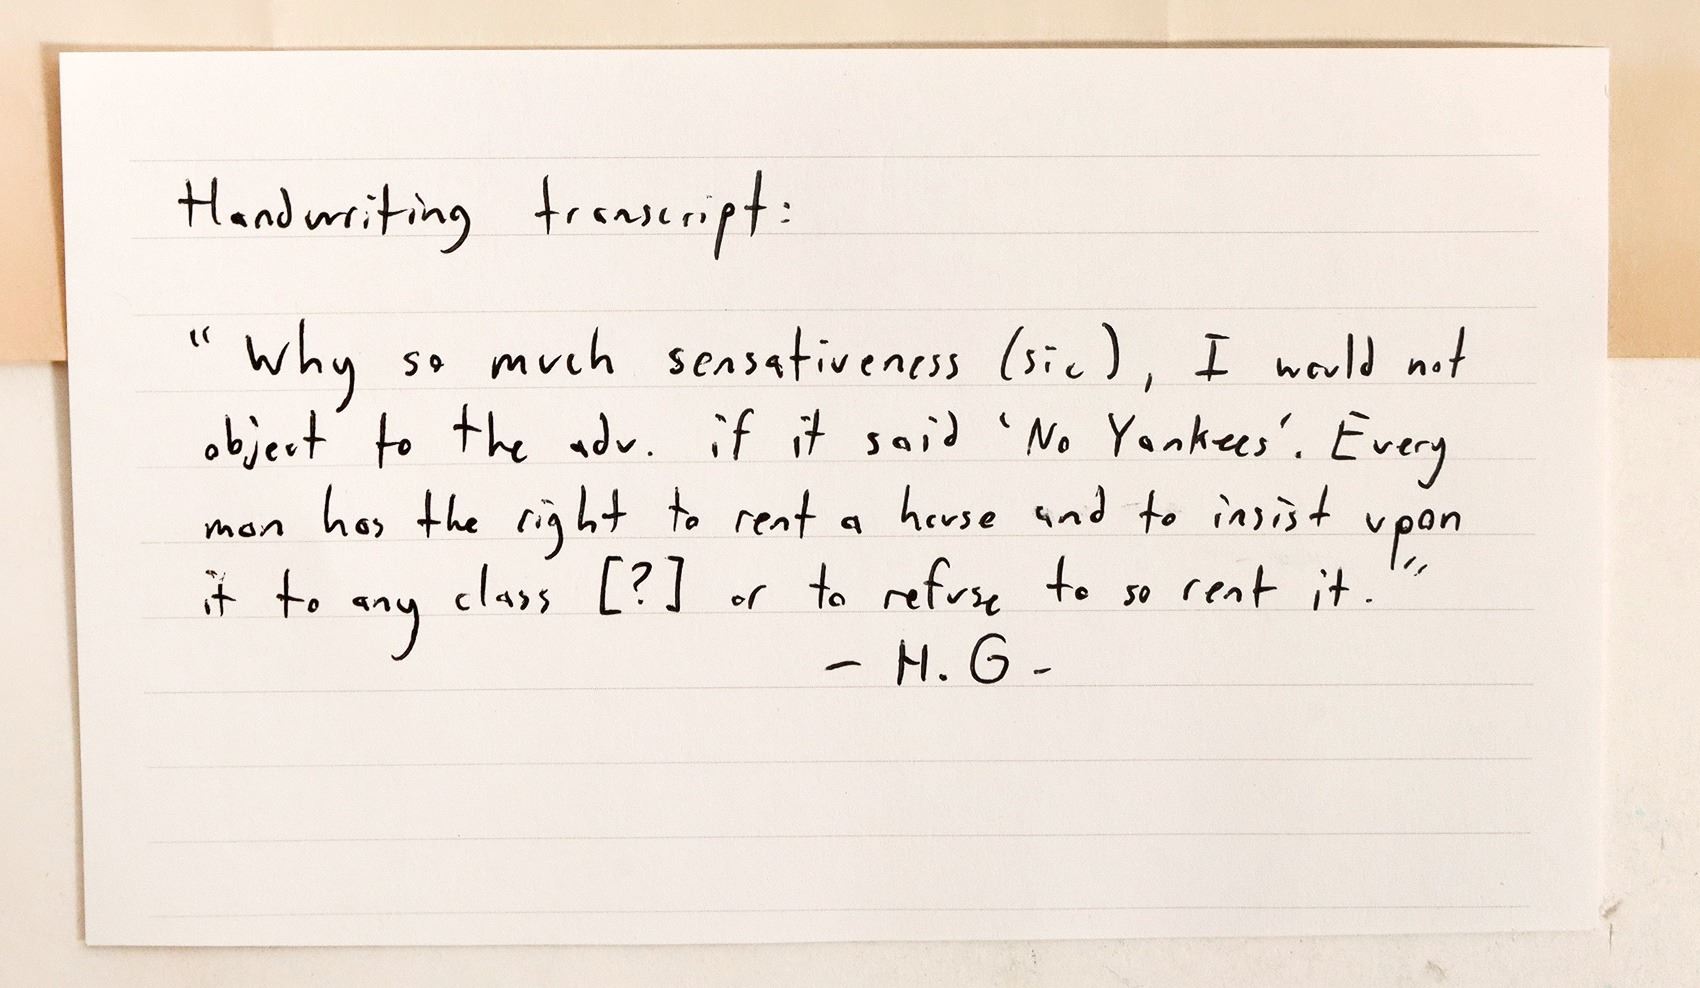 Handwriting transcript:
"Why so much sensativeness (sic), I would not
object to the adv. if it said 'No Yankees'. Every
man has the right to rent a house and to insist upon
it to any class [?] or to refuse to so rent it."
- H. G -